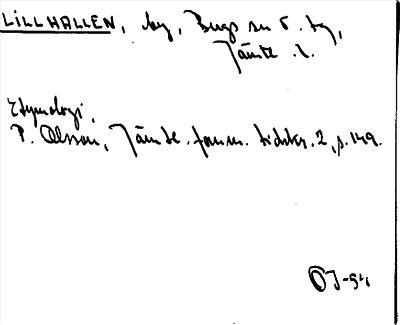 LILLHALLEN, by, Bergs sn o. tg,
Jämtl. l.
Etymologi,
P. Olsson, Jämtl. fornm. tidskr. 2, s. 149.
OJ-54